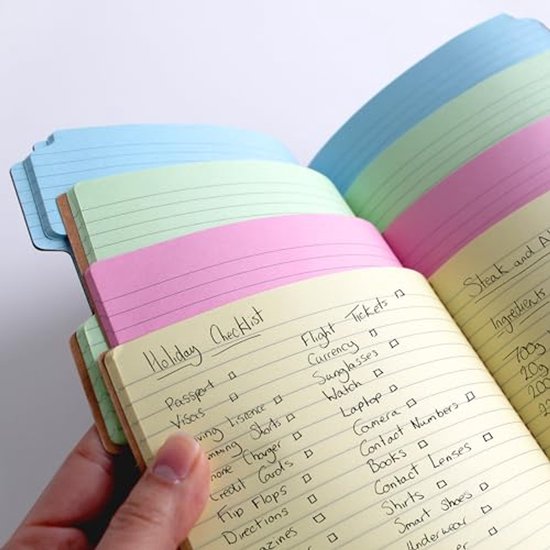 Holiday Checklist
Passport
Visors
ving Lisence
mming Shorts
hone Charger
Credit Cards
Flip Flops
Directions
azines
Flight Tickets
Currency
Sunglasses
Watch
Laptop
Camera
Contact Numbers
Books
Contact Lenses
Shirts
Smart Shoes
Underwear
Steak and Al
Ingredients
700g
20g
200
2